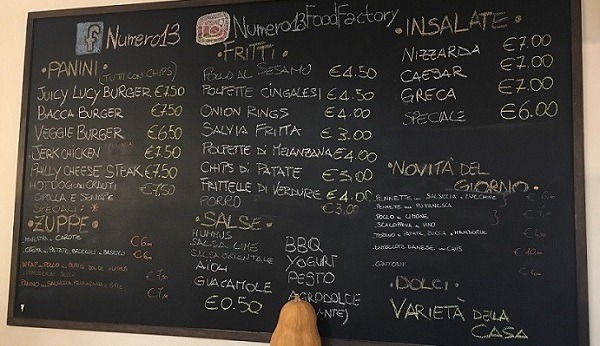 Numero13
Numero13FoodFactory
PANINI (TUTTI CON CHIPS)
JUICY LUCY BURGER €7.50
BACCA BURGER €7.50
VEGGIE BURGER €6.50
JERK CHICKEN €7.50
PHILLY CHEESE STEAK €7.50
HOT DOG CON CRAUTI €7.50
CIPOLLA E SENAPE
SPECIALI
ZUPPE
CAROTE €6
CREMA DI PATATE, BROCCOLI E BASILICO €6
FRITTI
POLLO AL SESAMO €4.50
POLPETTE CINGALESI €4.50
ONION RINGS €4.00
SALVIA FRITTA €3.00
POLPETTE DI MELANZANA €4.00
CHIPS DI PATATE €3.00
FRITTELLE DI VERDURE €4.00
PORRO €3.00
SALSE
HUMMUS
SALSA LIME
SALSA ORIENTALE
AIOLI
GUACAMOLE
€0.50
BBQ
YOGURT
PESTO
AGRODOLCE
INSALATE
NIZZARDA €7.00
CAESAR €7.00
GRECA €7.00
SPECIALE €6.00
NOVITÀ DEL
GIORNO
PENNETTE SALSICCIA E ZUCCHINE
PENNETTE PUTTANESCA
POLLO AL LIMONE
SCALOPPINA AL VINO
DOLCI
VARIETÀ DELLA
CASA